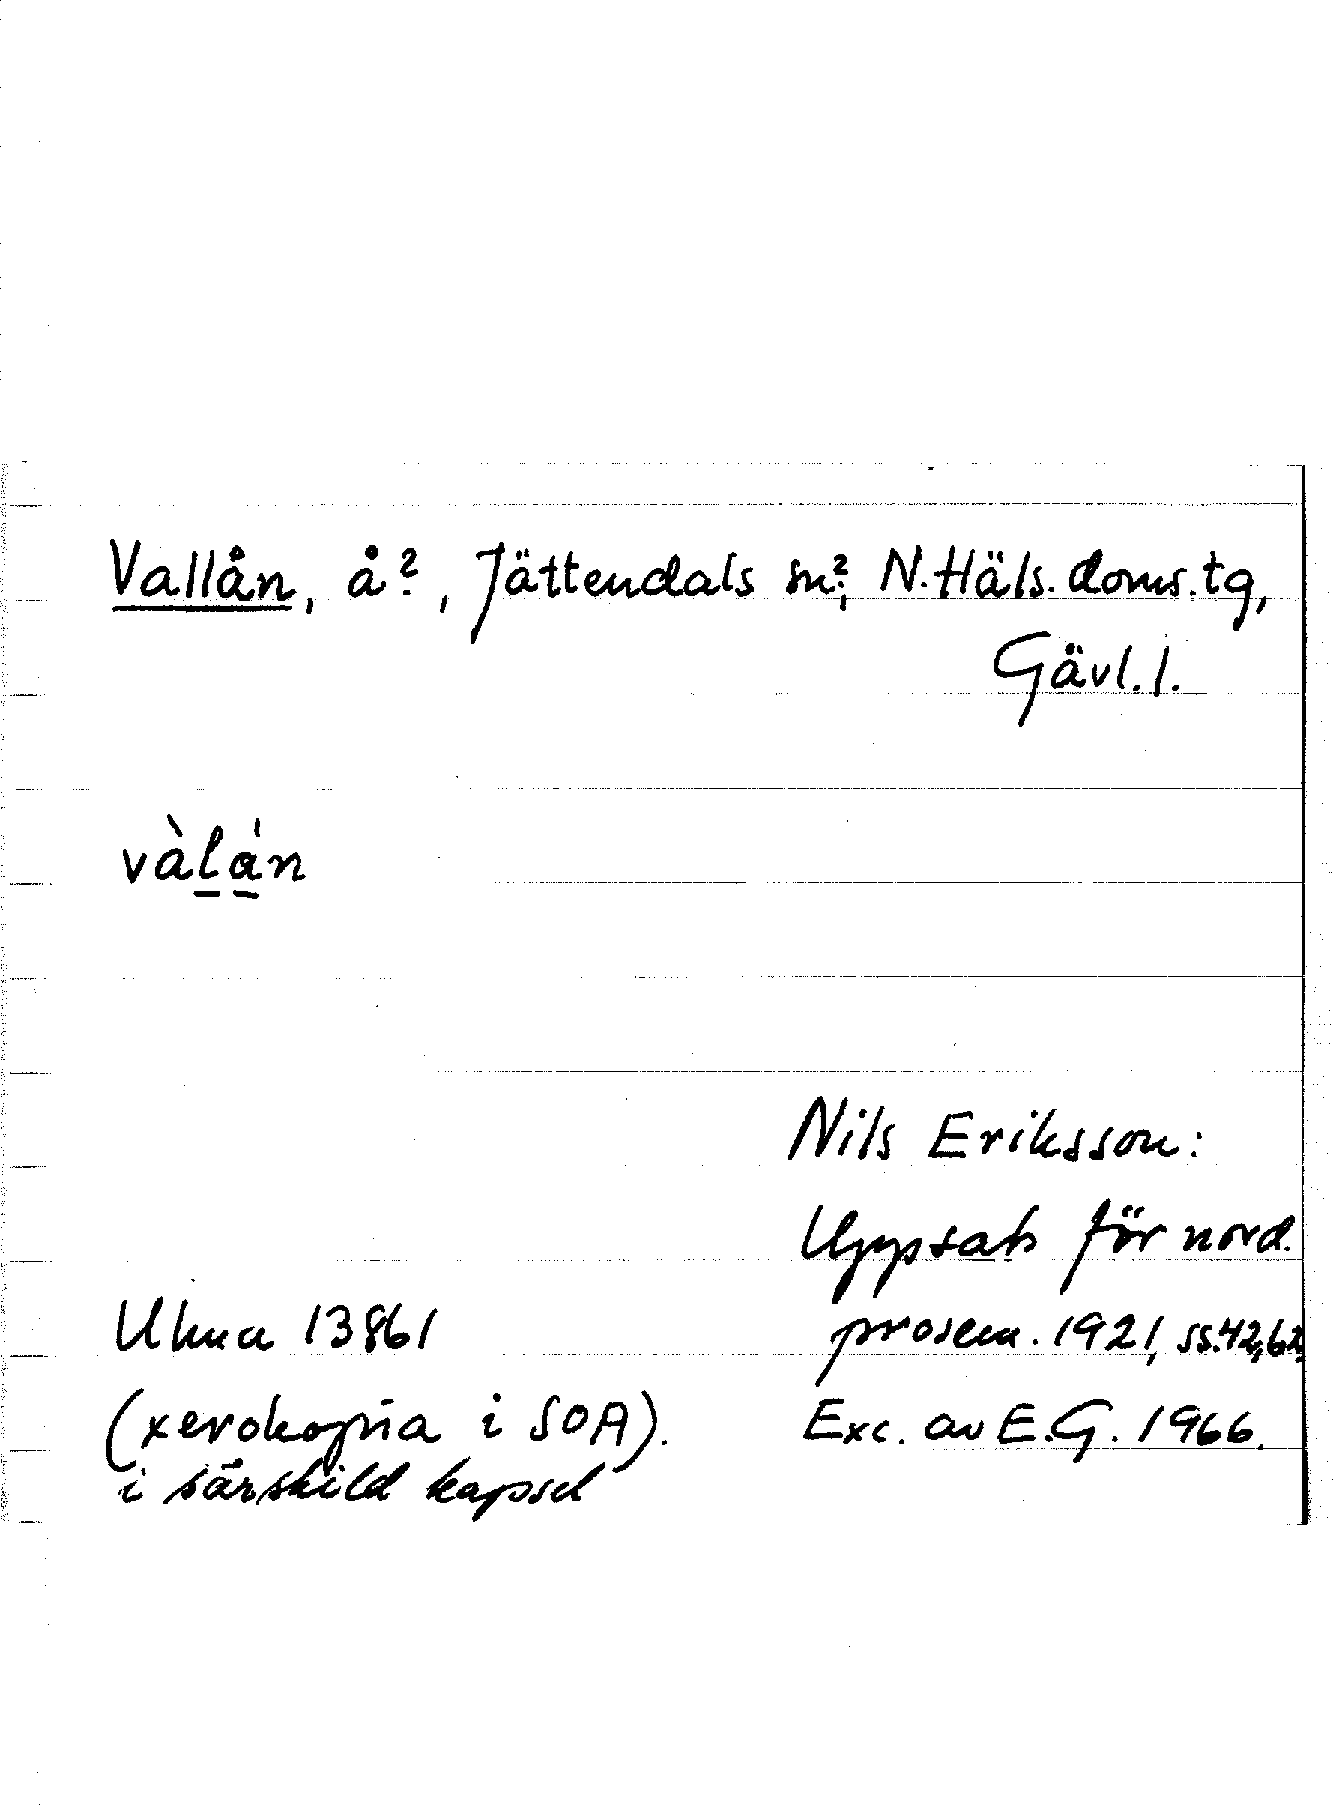 Vallån, å?, Jättendals sn?, N. Häls. doms. tg,
Gävl. l.
vàlån
Nils Eriksson:
Uppsats för nord.
prosem. 1921, ss. 42, 62,
Exc. av E.G. 1966.
Ulma 13861
(xerokopia i SOA).
i särskild kapsel